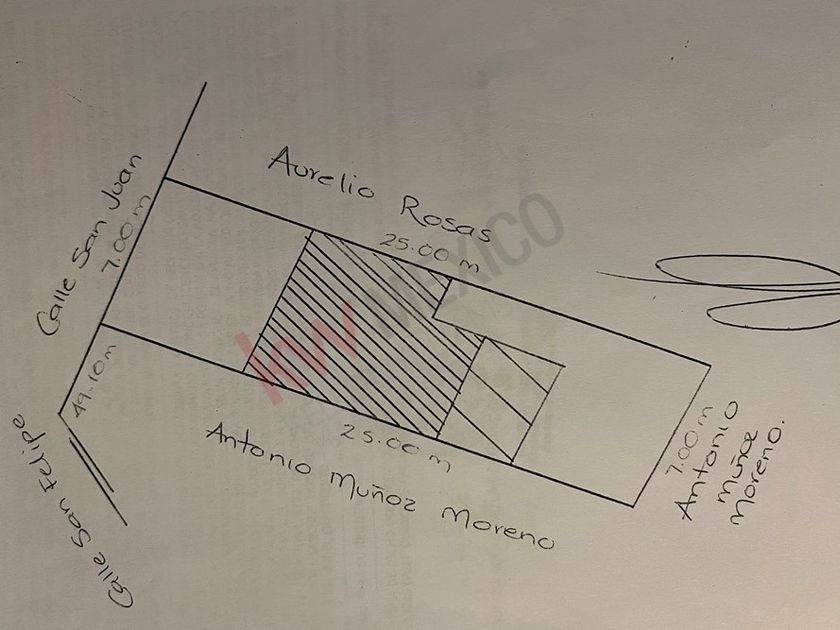 Calle San Juan
7.00 m
Aurelio Rosas
25.00 m
kw MEXICO
49.10 m
25.00 m
Antonio Muñoz Moreno
7.00 m
Antonio
Muñoz
Moreno.
Calle San Felipe